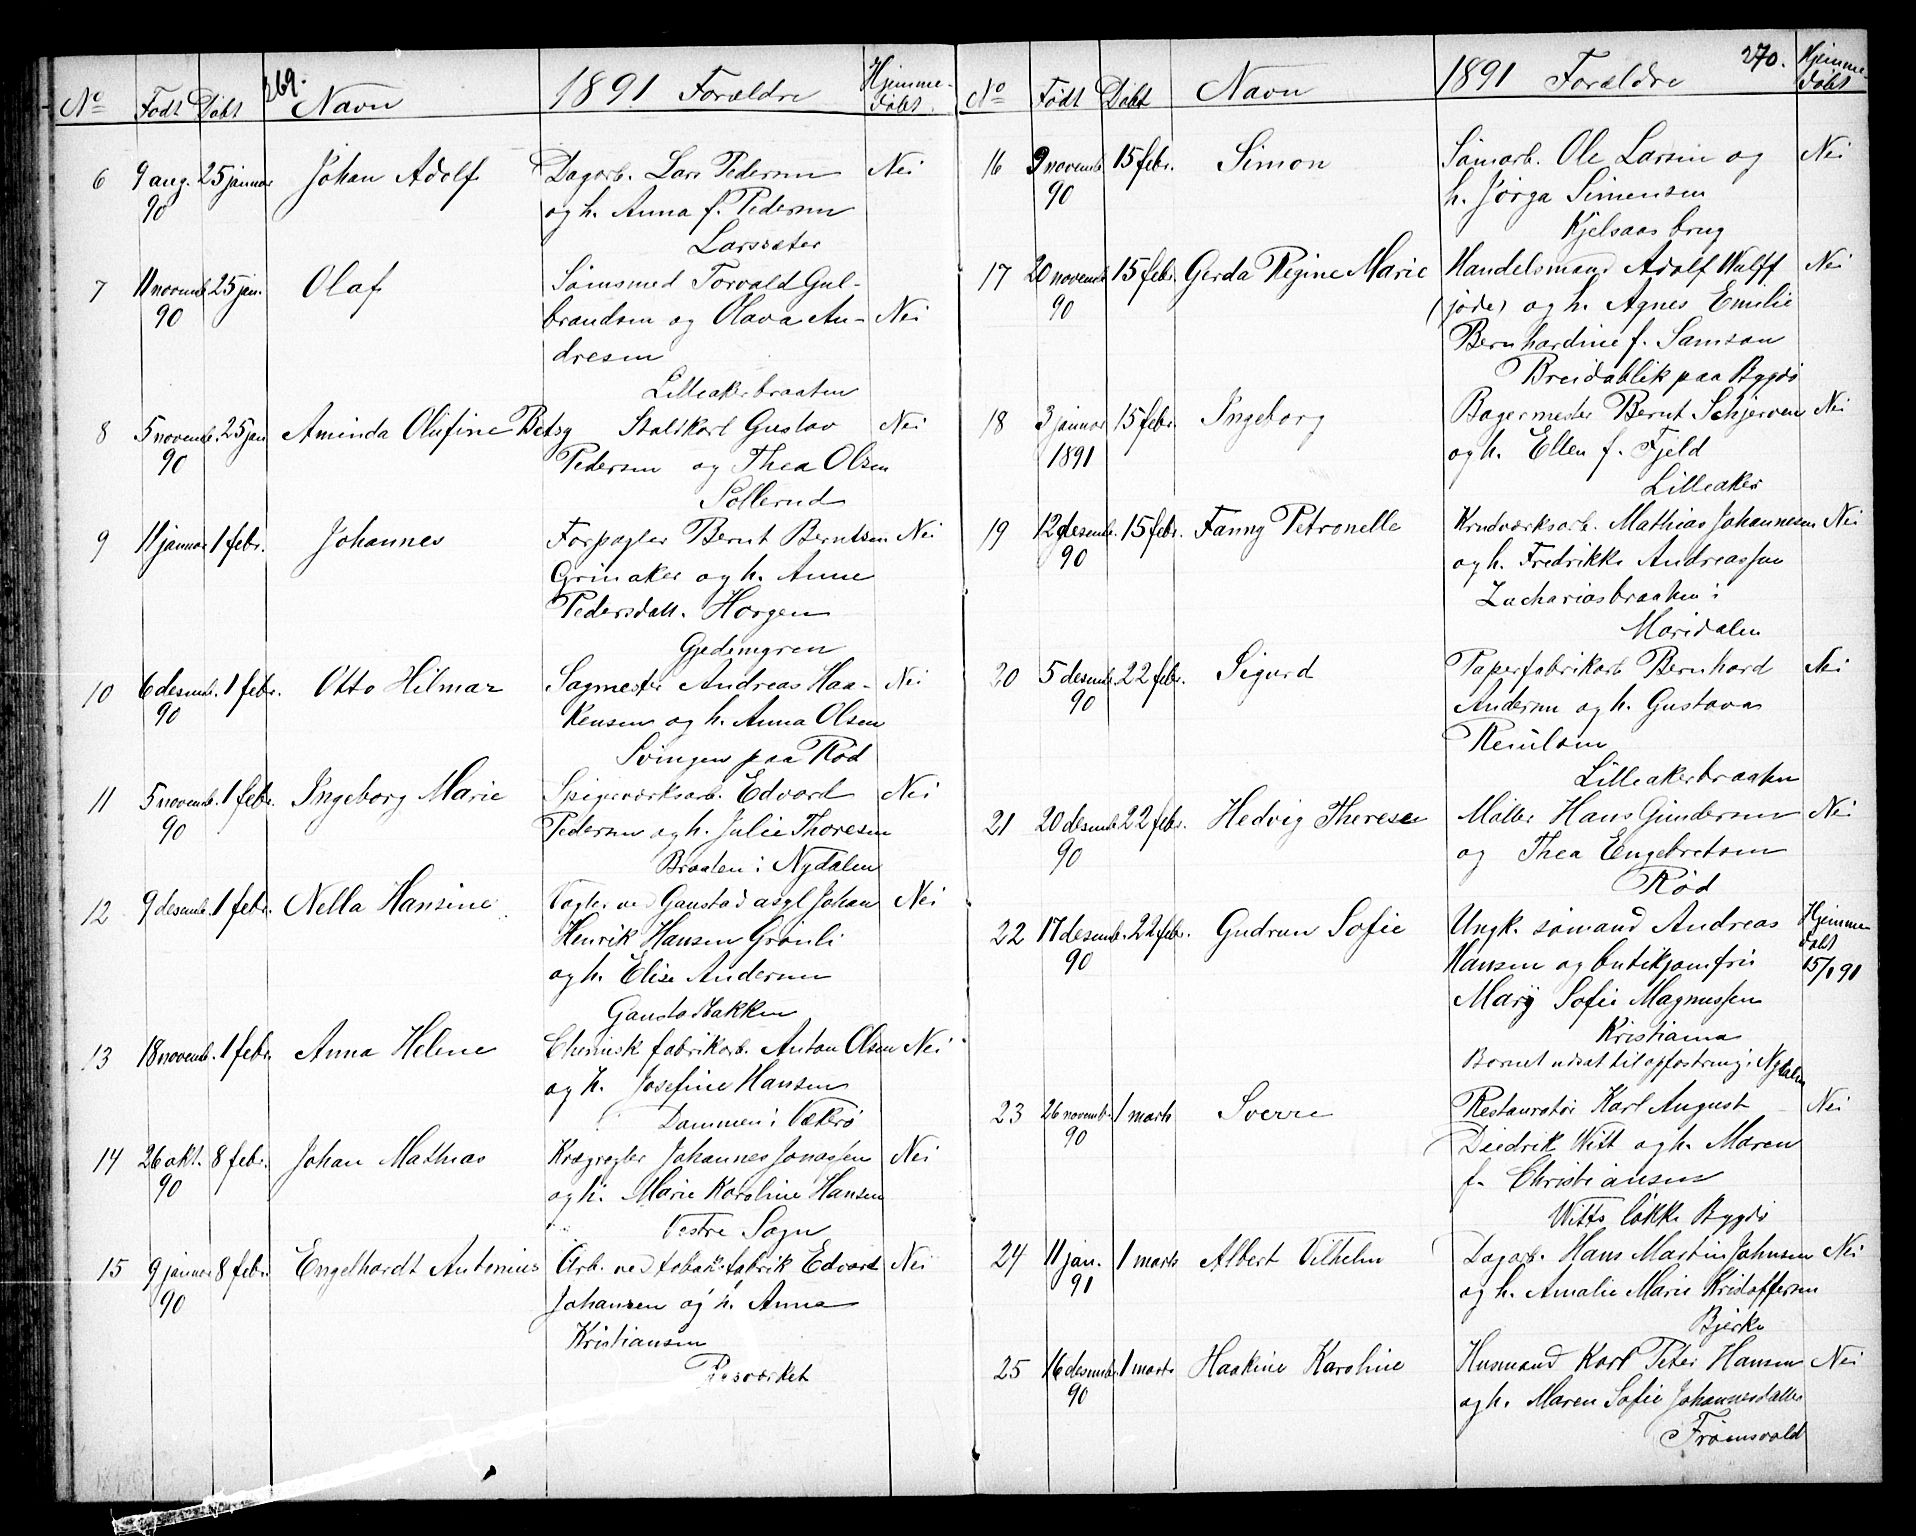 269.
No Født Døbt Navn 1891 Forældre Hjemme-
døbt
6 9 aug. 25 januar Johan Adolf Dagarb. Lars Pedersen Nei
90 og h. Anna f. Pedersen
Larssæter
7 11 novemb. 25 jan. Olaf Sømsmed Torvald Gul-
90 brandsen og Olava An- Nei
dresen
Lilleakerbraaten
8 5 novemb. 25 jan Aminda Olufine Betsy Staldkarl Gustav Nei
90 Pedersen og Thea Olsen
Sollerud
9 11 januar 1 febr. Johannes Forpagter Bernt Berntsen Nei
Grinaker og h. Anne
Pedersdatt. Horgen
10 6 desemb. 1 febr. Otto Hilmar Sagmester Andreas Haa- Nei
90 kensen og h. Anna Olsen
Svingen paa Rød
11 5 novemb. 1 febr. Ingeborg Marie Spigerværksarb. Edvard Nei
90 Pedersen og h. Julie Thoresen
Braaten i Nydalen
12 9 desemb. 1 febr. Nella Hansine Vogter ved Gaustad asyl Johan Nei
Henrik Hansen Grønli
og h. Elise Andersen
Gaustadbakken
13 18 novemb. 1 febr. Anna Helene Chemisk fabrikarb. Anton Olsen Nei
og h. Josefine Hansen
Dammen i Vækerø
14 26 okt. 8 febr. Johan Mathias Krøgvogter Johannes Jonassen Nei
90 og h. Marie Karoline Hansen
Vestre Sogn
15 9 januar 8 febr. Engelhardt Antonius Arb. ved tobaksfabrik Edvard Nei
90 Johansen og h. Anna
Kristiansen
270.
No Født Døbt Navn 1891 Forældre Hjemme-
døbt
16 9 novemb. 15 febr. Simon Sømarb. Ole Larsen og Nei
90 h. Jørga Simensen
Kjelsaas brug
17 20 novemb. 15 febr. Gerda Regine Marie Handelsmand Adolf Wulff Nei
90 (jøde) og h. Agnes Emilie
Bernhardine f. Samson
Breidablik paa Bygdø
18 3 januar 15 febr. Ingeborg Bagermester Bernt Schjerven Nei
1891 og h. Ellen f. Fjeld
Lilleaker
19 12 desemb. 15 febr. Fanny Petronelle Krudværksarb. Mathias Johannesen Nei
90 og h. Fredrikke Andreassen
Zachariasbraaten i
Maridalen
20 5 desemb. 22 febr. Sigurd Papirfabrikarb Bernhard Nei
90 Andersen og h. Gustava
Lilleakerbraaten
21 20 desemb. 22 febr. Hedvig Therese Møller Hans Gundersen Nei
90 og Thea Engebretsen
Rød
22 17 desemb. 22 febr. Gudrun Sofie Ungk. sømand Andreas Hjemme-
90 Hansen og butikjomfru døbt
Mary Sofie Magnussen 15/1 91
Kristiania
Barnet udsat til opfostring i Nydalen
23 26 novemb. 1 marts Sverre Restauratør Karl August Nei
90 Diedrik Witt og h. Maren
f. Christiansen
Witts løkke Bygdø
24 11 jan. 1 marts Albert Vilhelm Dagarb. Hans Martin Johnsen Nei
91 og h. Amalie Marie Kristoffersen
Bjerke
25 16 desemb. 1 marts Haakine Karoline Husmand Karl Peter Hansen Nei
90 og h. Maren Sofie Johannesdatter
Frøensvold